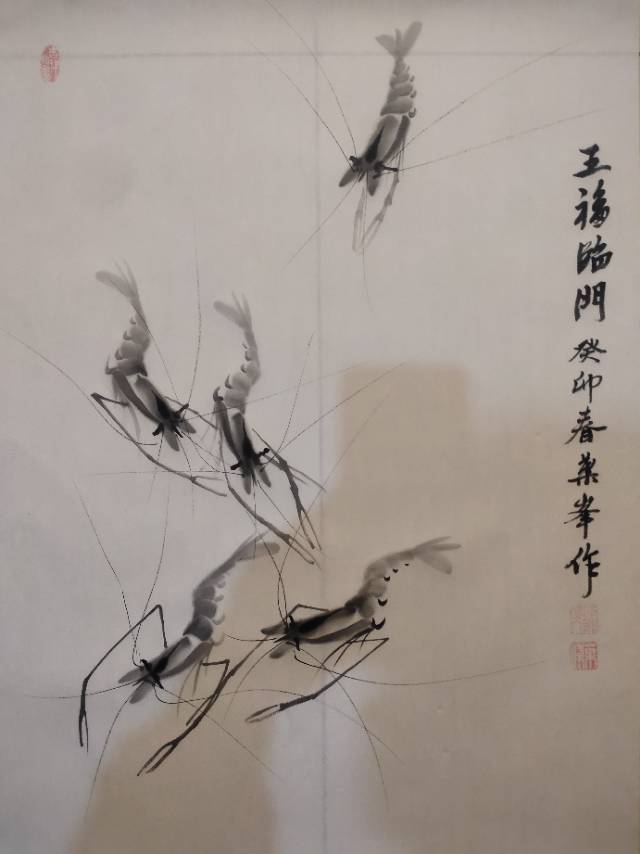 五福臨門癸卯春葉峯作